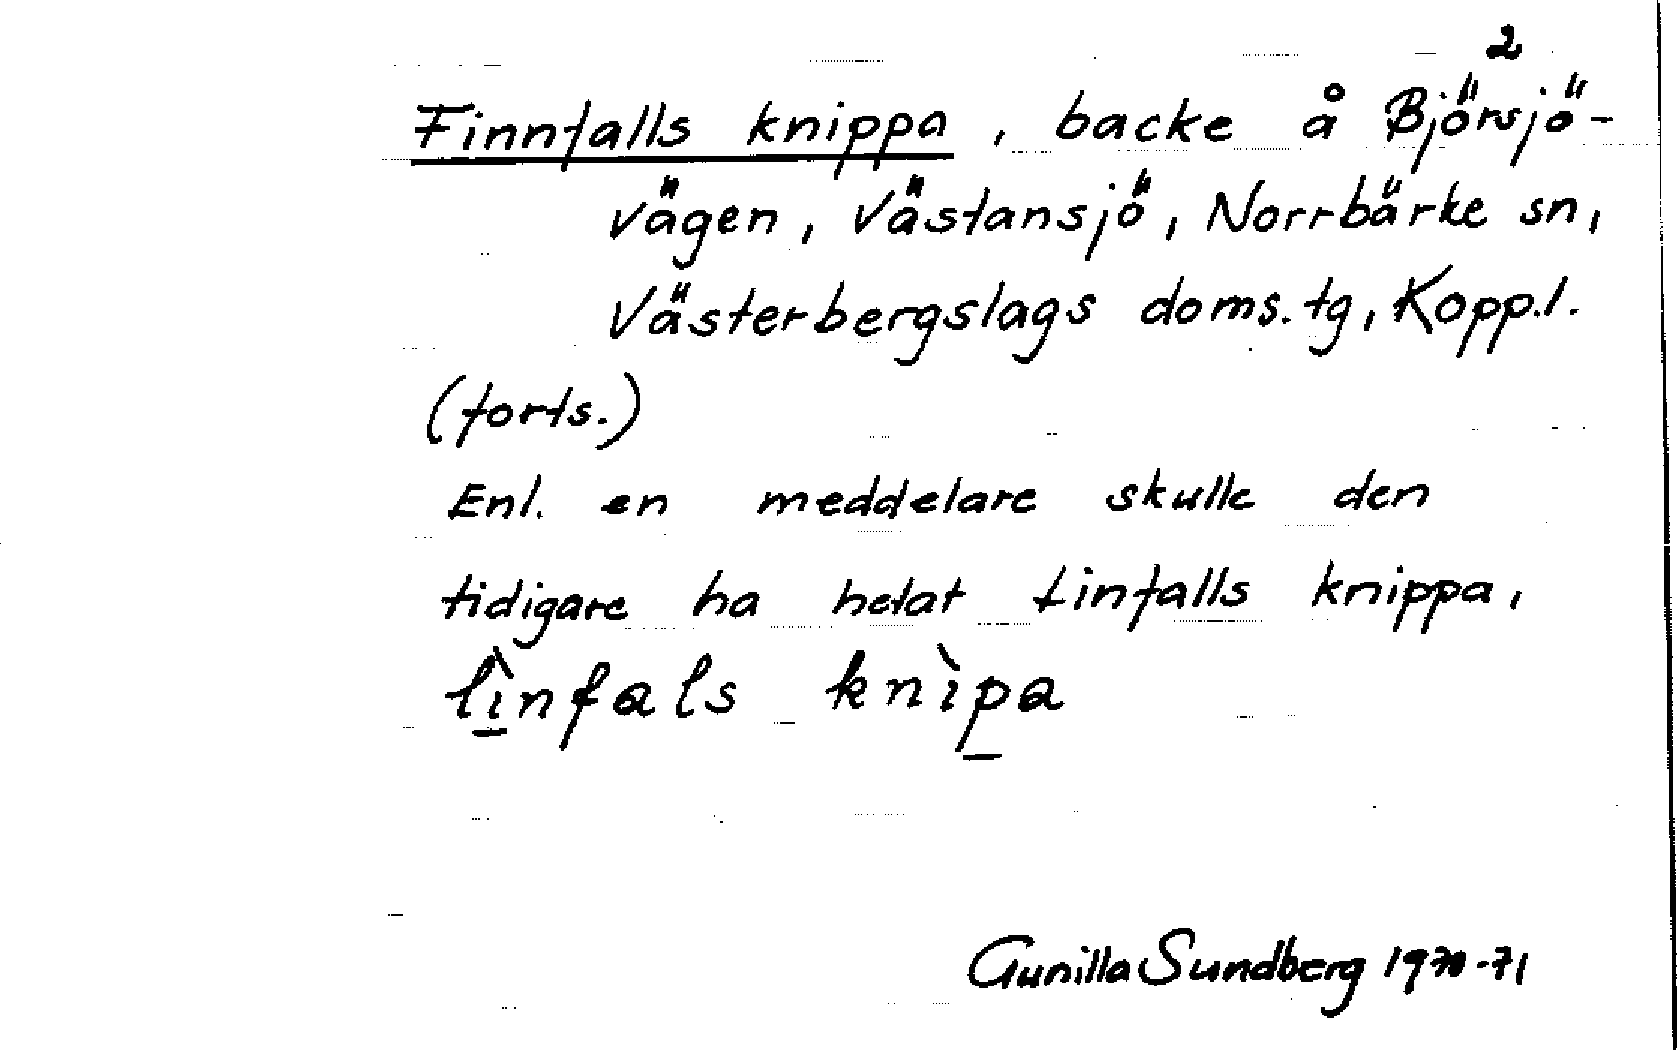 2
Finnfalls knippa, backe å Björsjö-
vägen, Västansjö, Norrbärke sn,
Västerbergslags doms.tg, Kopp.l.
(forts.)
Enl. en meddelare skulle den
tidigare ha hetat Linfalls knippa,
lìnfals knìpa
Gunilla Sundberg 1970-71